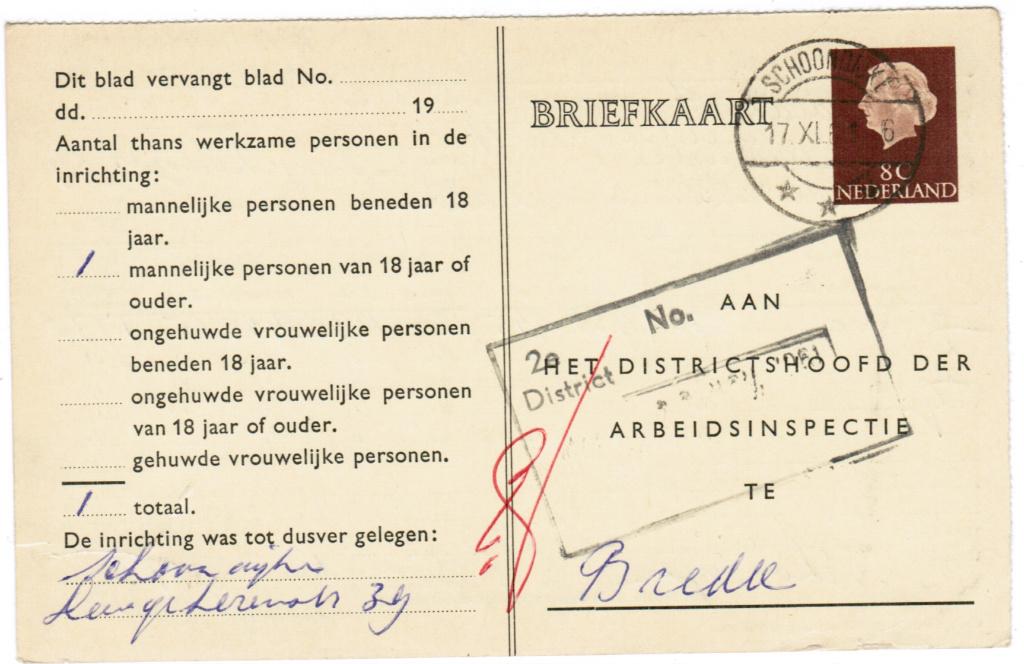 Dit blad vervangt blad No.
dd. 19
Aantal thans werkzame personen in de
inrichting:
mannelijke personen beneden 18
jaar.
1 mannelijke personen van 18 jaar of
ouder.
ongehuwde vrouwelijke personen
beneden 18 jaar.
ongehuwde vrouwelijke personen
van 18 jaar of ouder.
gehuwde vrouwelijke personen.
1 totaal.
De inrichting was tot dusver gelegen:
Schoondijke
39
BRIEFKAART
17. XI.
8 C
NEDERLAND
No.
2e
District
AAN
HET DISTRICTSHOOFD DER
ARBEIDSINSPECTIE
TE
Breda